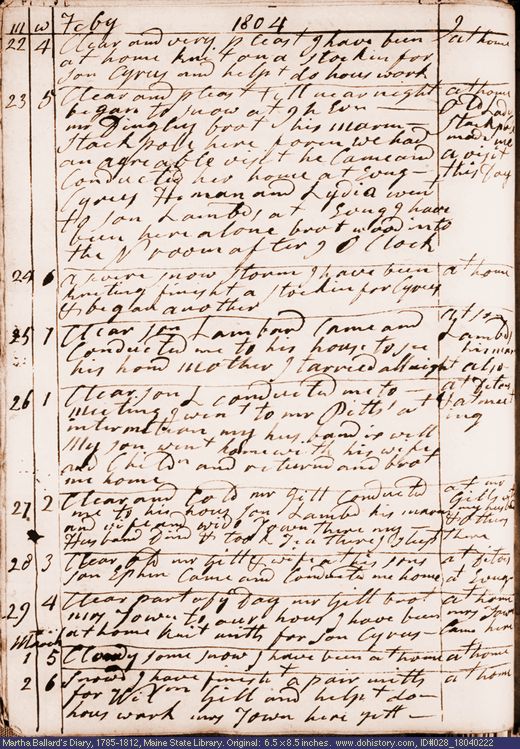 m w Feby 1804
22 4 Clear and very pleast I have been at home
at home knit on a stockin for
Son Cyrus and helpt do hous work
23 5 Clear and pleast till near night at home
began to snow at 9 h Evn old Lady
mr Dingley brot his marm Stackpole
Stackpole here foren we had made me
an agreable visit he Came and a visit
Conducted her home at Evng this Day
Cyrus Heman and Lydia went
to son Lambds at Evng I have
been here alone brot wood into
the N room after 9 O Clock
24 6 A snow storm I have been at home
kniting finisht a stockin for Cyrus
& began another
25 7 Clear son Lambard Came and at son
Conducted me to his house to see Lambds
his hond mother I tarried all night his marm
also
26 1 Clear son L conducted me to at Detos
meeting I went to mr Pitts at at meet
intermition my husband is well ing
my son went home with his wife
and Childn and returnd and brot
me home
27 2 Clear and Cold mr Gill Conducted at mr
me to his hous son Lambd his marm Gills wt
and wife and wido Town there my my husbd
Husband dind & took Tea there I sleep & others
there
28 3 Clear Cold mr Gill & wife at his sons at Detos
son Ephm Came and Conducted me home at Evng
29 4 Clear part of y Day mr Gill brot at home
mrs Town to our hous I have been mrs Town
at home knit mitts for son Cyrus Came here
March
1 5 Cloudy some snow I have been at home at home
2 6 Snowd I have finisht a pair mitts at home
for Wilm Gill and helpt do
hous work mrs Town here yett
Martha Ballard's Diary, 1785-1812, Maine State Library. Original: 6.5 x 8.5 inches. www.dohistory.com, ID#028_18040222